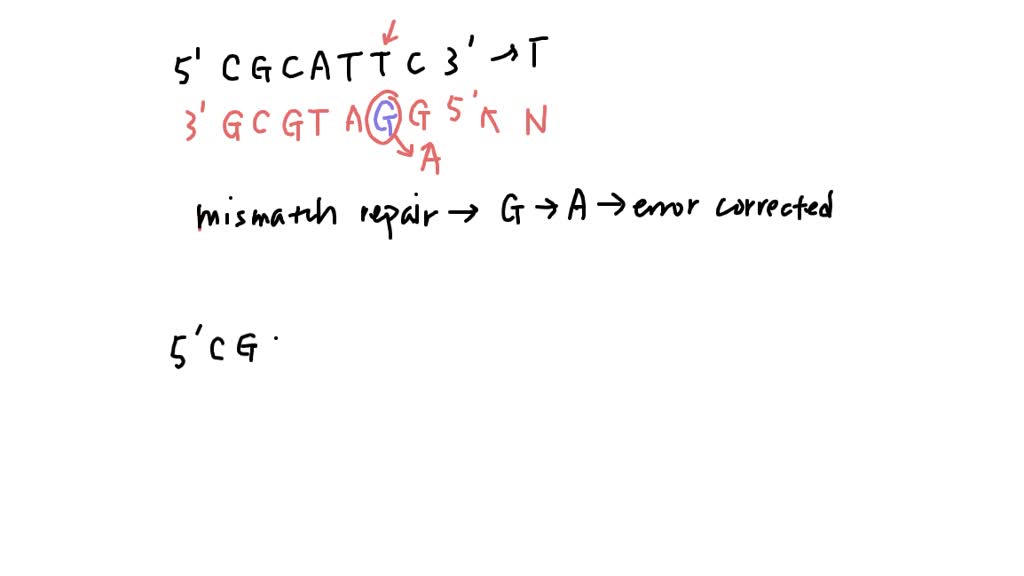 5' C G C A T T C 3' → T
3' G C G T A G G 5' ↖ N
A
mismatch repair → G → A → error corrected
5' C G